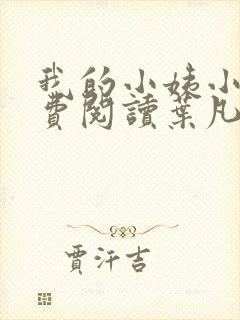 我的小姨小
費閱讀葉凡
賈汗吉